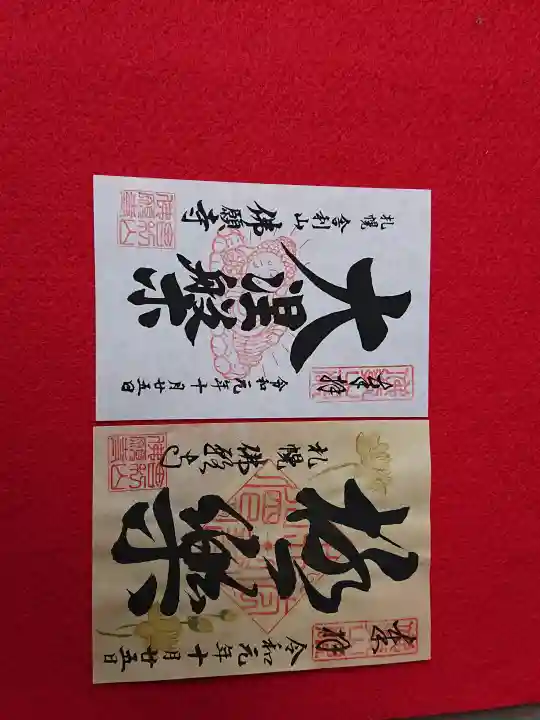 奉拝
大涅槃
札幌 舎利山 佛願寺
令和元年十月廿五日
奉拝
極楽
札幌 佛願寺
令和元年十月廿五日